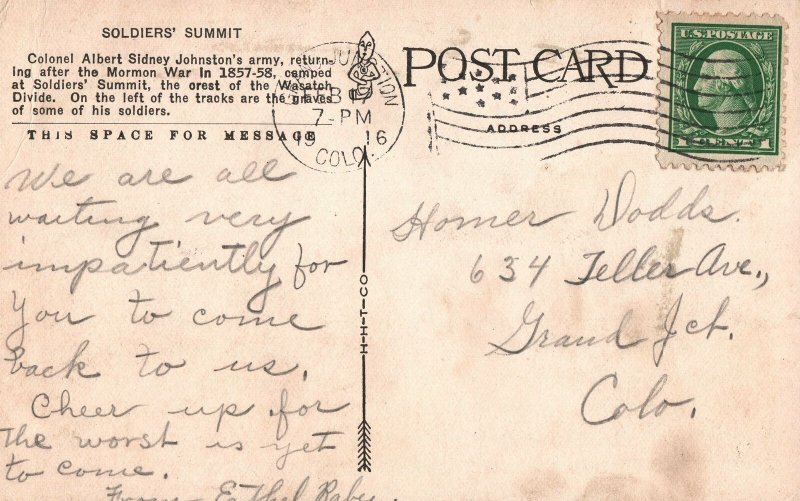 SOLDIERS' SUMMIT
Colonel Albert Sidney Johnston's army, return-
ing after the Mormon War in 1857-58, camped
at Soldiers' Summit, the crest of the Wasatch
Divide. On the left of the tracks are the graves
of some of his soldiers.
THIS SPACE FOR MESSAGE
We are all
waiting very
impatiently for
You to come
back to us.
Cheer up for
The worst is yet
to come.
From Ethel Raby.
H-H-T-CO
JUNCTION
FEB 17
7-PM
1916
COLO.
POST CARD
ADDRESS
U.S. POSTAGE
1 CENT 1
Homer Dodds.
634 Teller Ave.,
Grand Jct.
Colo.